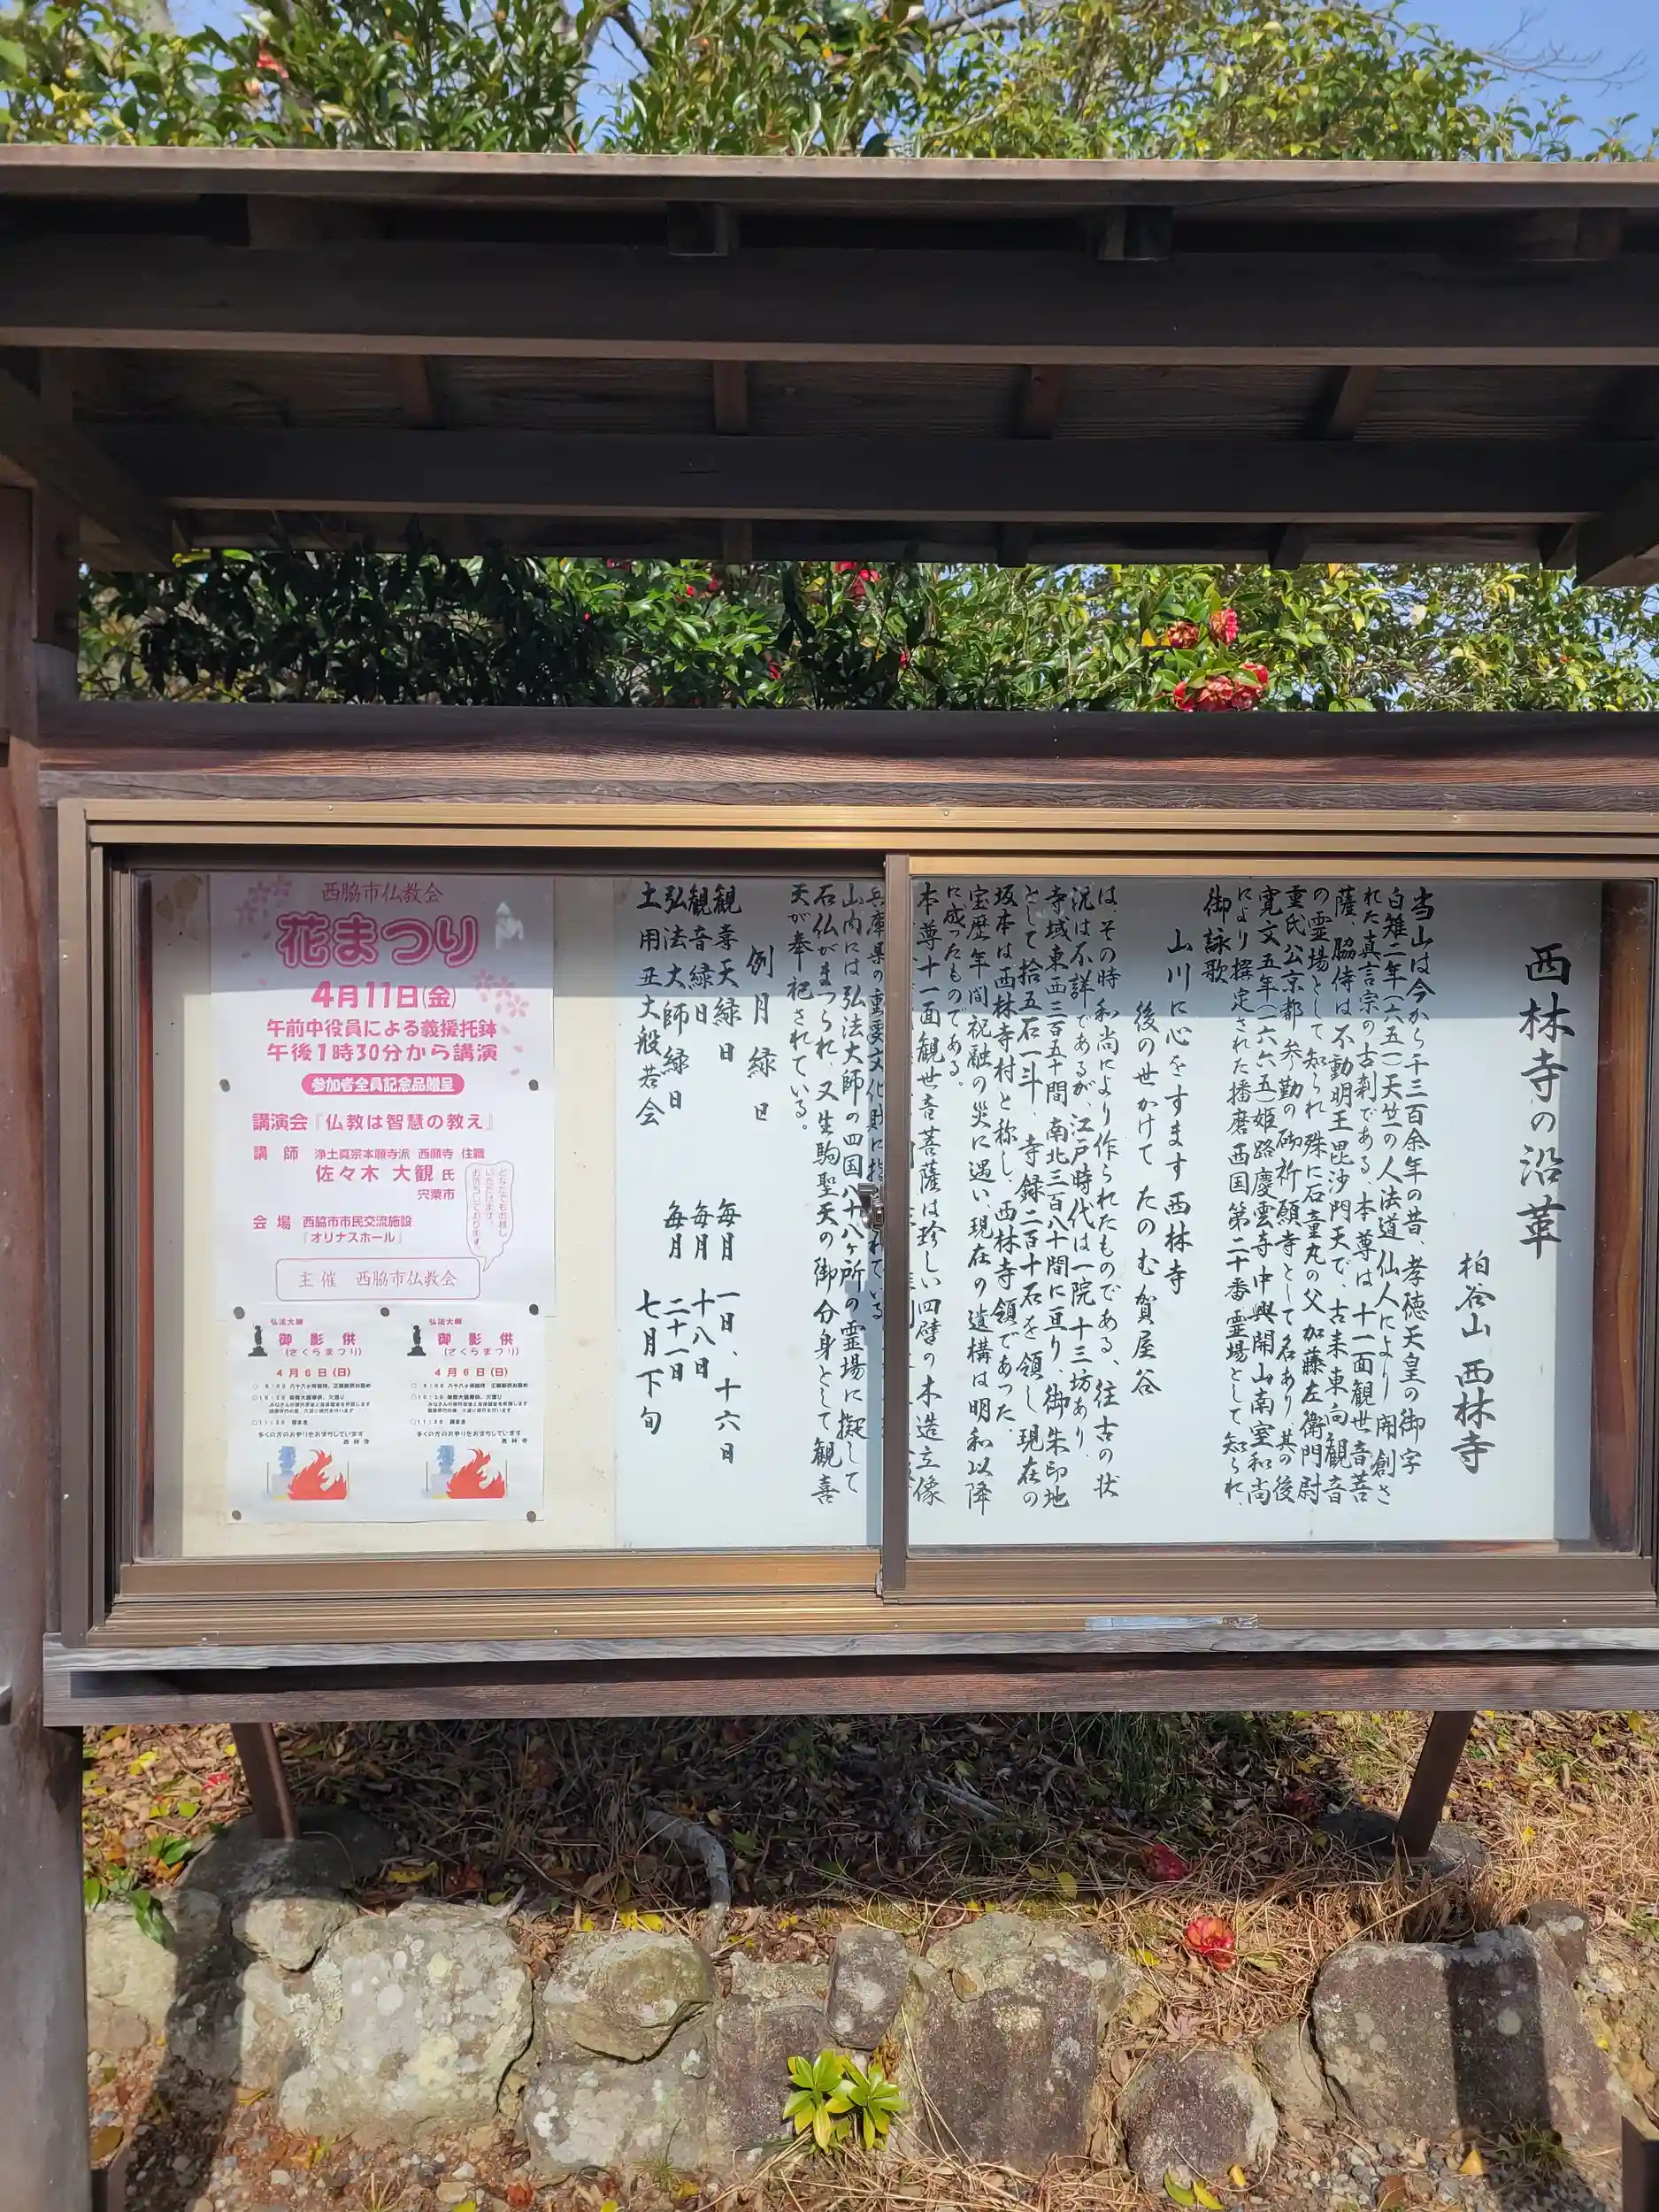 西林寺の沿革
柏谷山 西林寺
当山は今から千三百余年の昔、孝徳天皇の御宇
白雉二年(六五一)天竺の人法道仙人により開創さ
れた真言宗の古刹である、本尊は十一面観世音菩
薩、脇侍は不動明王毘沙門天で、古来東向観音
の霊場として知られ殊に石童丸の父加藤左衛門尉
重氏公京都参勤の砌祈願寺として名あり、其の後
寛文五年(一六六五)姫路慶雲寺中興開山南室和尚
により撰定された播磨西国第二十番霊場として知られ、
御詠歌
山川に心をすます西林寺
後の世かけて たのむ賀屋谷
は、その時和尚により作られたものである、往古の状
況は不詳であるが、江戸時代は一院十三坊あり、
寺域東西三百五十間南北三百八十間に亘り、御朱印地
として拾五石一斗、寺録二百十石を領し、現在の
坂本は西林寺村と称し、西林寺領であった。
宝歴年間祝融の災に遇い、現在の遺構は明和以降
に成ったものである。
本尊十一面観世音菩薩は珍しい四臂の木造立像
兵庫県の重要文化財に指
れている
山内には弘法大師の四国八十八ヶ所の霊場に擬して
石仏がまつられ、又生駒聖天の御分身として観喜
天が奉祀されている。
例月緑日
観喜天緑日 毎月 一日、十六日
観音緑日 毎月 十八日
弘法大師緑日 毎月 二十一日
土用丑大般若会 七月下旬
西脇市仏教会
花まつり
4月11日(金)
午前中役員による義援托鉢
午後1時30分から講演
参加者全員記念品贈呈
講演会『仏教は智慧の教え』
講師 浄土真宗本願寺派 西願寺 住職
佐々木 大観 氏
宍粟市
会場 西脇市市民交流施設
『オリナスホール』
どなたでもお越し
いただけます。
お待ちしております。
主催 西脇市仏教会
弘法大師
御影供
(さくらまつり)
4月6日(日)
多くの方のお参りをおまちしています
西林寺
弘法大師
御影供
(さくらまつり)
4月6日(日)
多くの方のお参りをおまちしています
西林寺